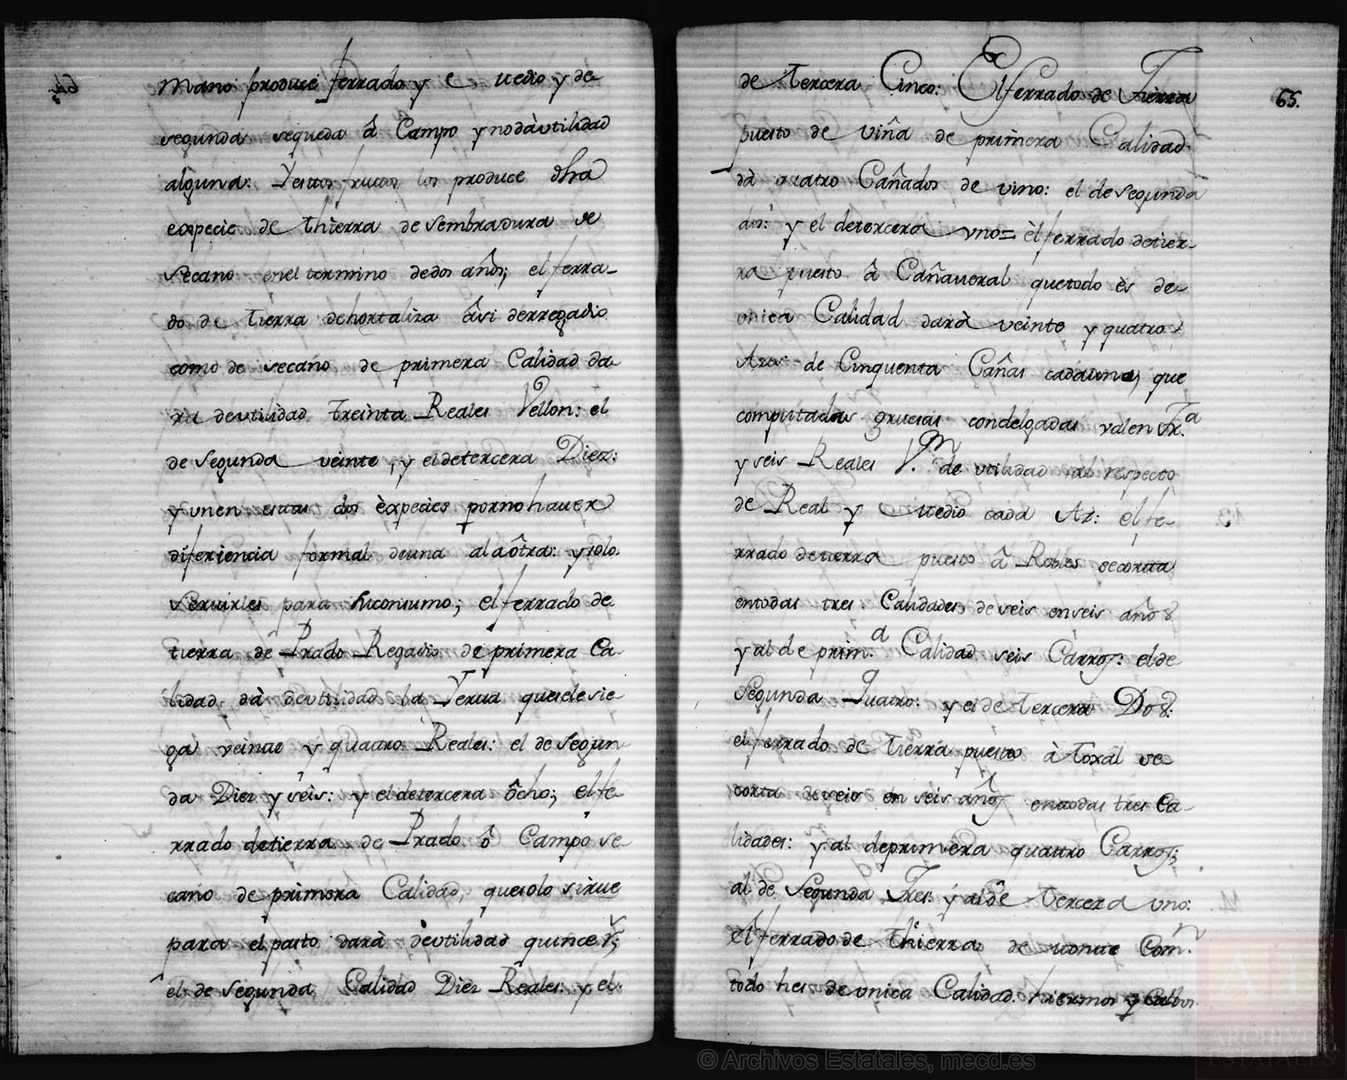 Mano produce ferrado y medio y de
segunda sequeda â Campo y no dà utilidad
alguna: Yestos frutos los produce dha
expecie de thierra de sembradura de
secano en el termino de dos años; el ferra-
do de tierra de hortaliza âsi de rregadio
como de secaño de primera Calidad da-
rà de utilidad treinta Reales Vellon: el
de Segunda veinte, y el de tercera Diez:
y unen estas dos èxpecies por no hauer
diferiencia formal de una a la ôtra: y solo
seruirles para su consumo; el ferrado de
tierra de Prado Regadio de primera Ca-
lidad, dà de utilidad la Yerua que se le sie-
ga veinte y quatro Reales: el de Segun-
da Diez y seis: y el de tercera ôcho; el fe-
rrado de tierra de Prado ô Campo se-
cano de primera Calidad, que solo sirue
para el pasto darà de utilidad quince rs;
el de Segunda Calidad Diez Reales: y el
65.
de tercera Cinco: El ferrado de Tierra
puesto de viña de primera Calidad
dà quatro Cañados de vino: el de segunda
dos: y el de tercera vno= èl ferrado de tier-
ra puesto â Cañaueral que todo ès de
vnica Calidad darà veinte y quatro
Azs de Cinquenta Cañas cada una, que
computadas gruesas con delgadas valen trta
y seis Reales Vn de utilidad al respecto
de Real y medio cada Az: el fe-
rrado de tierra puesto â Robles se corta
en todas tres Calidades de seis en seis años
y al de prim.a Calidad seis Carros: el de
Segunda Quatro: y el de tercera Dos:
el ferrado de tierra puesto à toxal se
corta de seis en seis años en todas tres Ca-
lidades: y al de primera quatro Carros;
al de Segunda Tres: y al de tercera vno:
el ferrado de thierra de monte Comn
todo hes de vnica Calidad. hiermos y
© Archivos Estatales, mecd.es
ARCHIVOS
ESTATALES